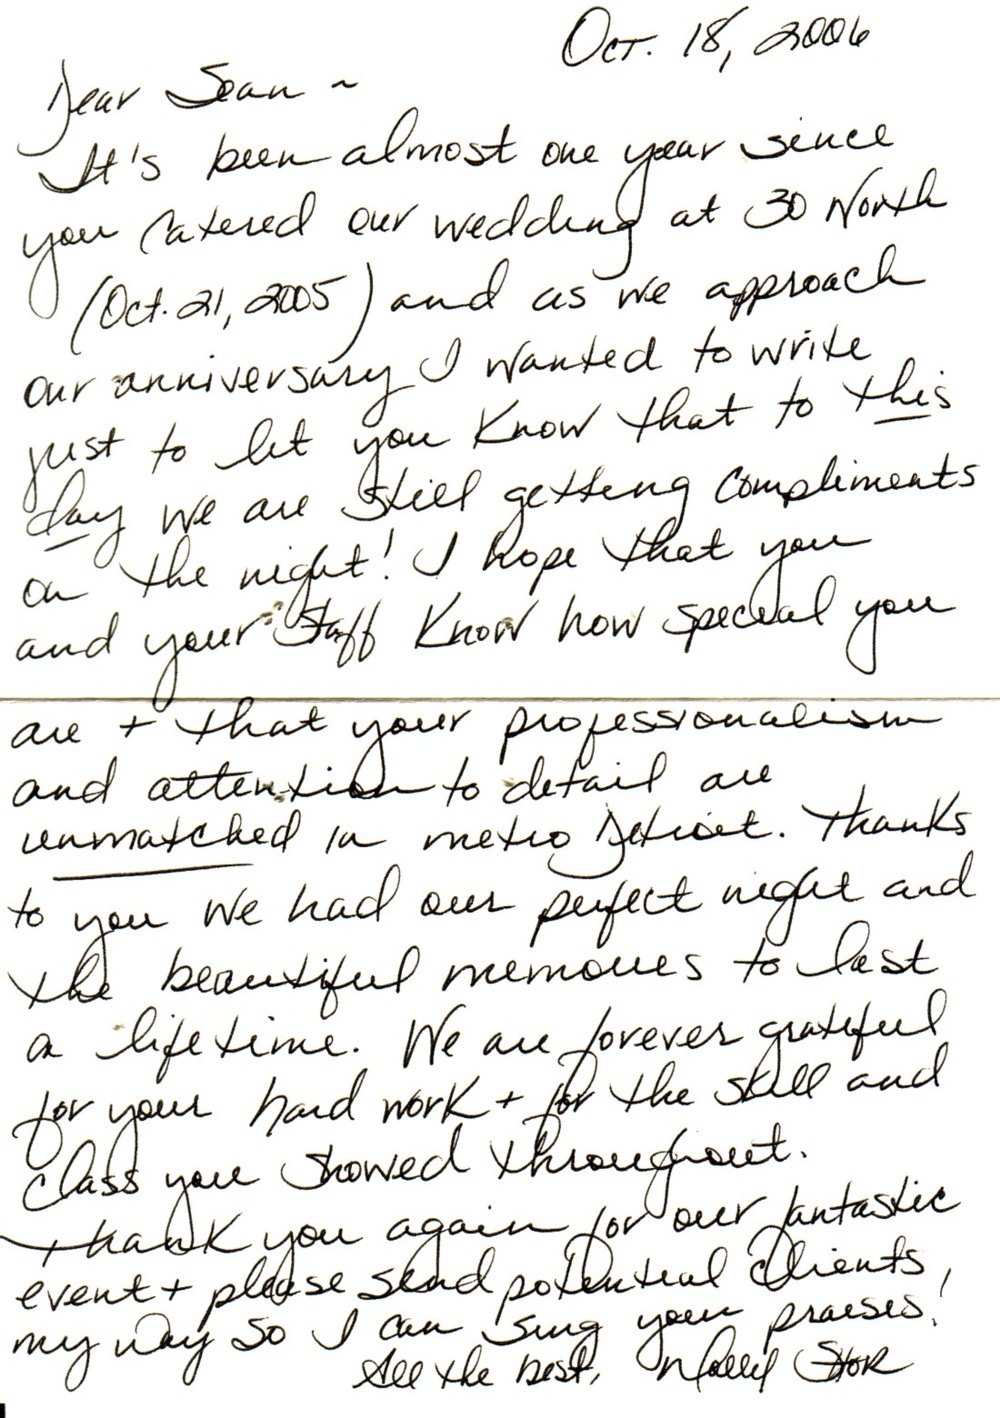 Oct. 18, 2006
Dear Sean ~
It's been almost one year since
you catered our wedding at 30 North
(Oct. 21, 2005) and as we approach
our anniversary I wanted to write
just to let you know that to this
day we are still getting compliments
on the night! I hope that you
and your staff know how special you
are + that your professionalism
and attention to detail are
unmatched in metro Detroit. Thanks
to you we had our perfect night and
the beautiful memories to last
a lifetime. We are forever grateful
for your hard work + for the skill and
class you showed throughout.
Thank you again for our fantastic
event + please send potential clients
my way so I can sing your praises!
All the best,